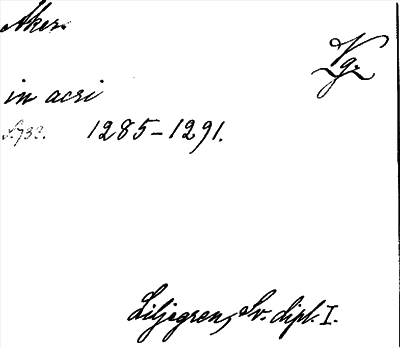 Åker
Vg.
in acri
S. 732. 1285-1291.
Liljegren, Sv. dipl. I.